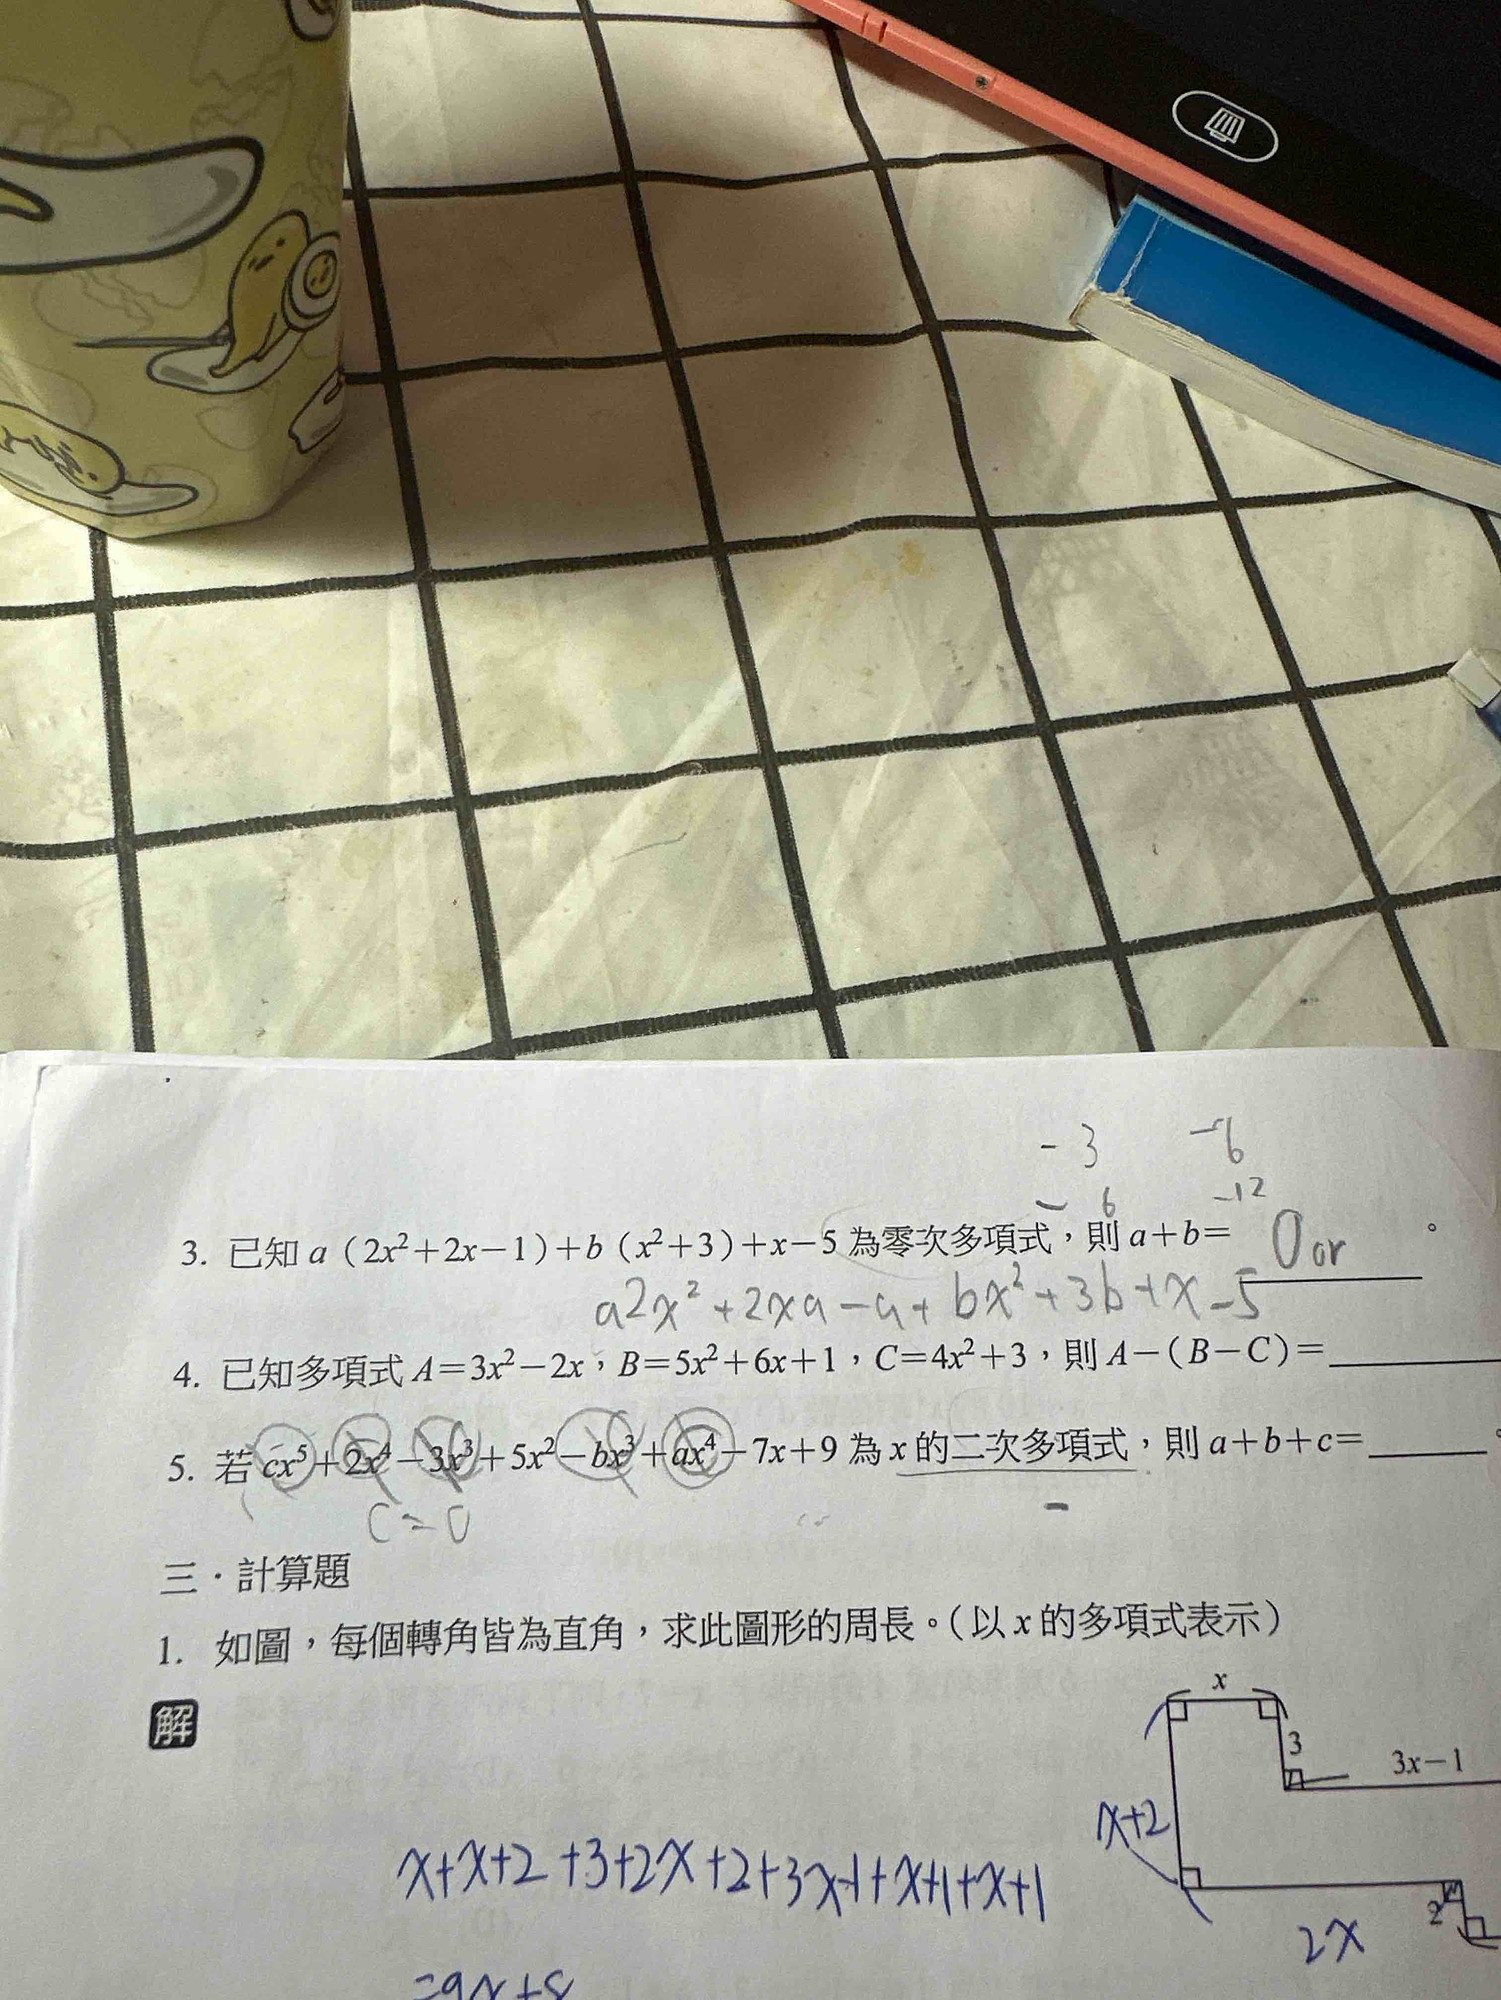 -3 -6
-6 -12
3. 已知 a（2x²+2x-1）+b（x²+3）+x-5 為零次多項式，則 a+b= 0 or 。
a2x²+2xa-a+bx²+3b+x-5
4. 已知多項式 A=3x²-2x，B=5x²+6x+1，C=4x²+3，則 A-(B-C)=
5. 若 cx⁵+2x⁴-3x³+5x²-bx³+ax⁴-7x+9 為 x 的二次多項式，則 a+b+c=
C=0
三．計算題
1. 如圖，每個轉角皆為直角，求此圖形的周長。（以 x 的多項式表示）
解
x
3
3x-1
x+2
x+x+2+3+2x+2+3x-1+x+1+x+1
2
2x
=9x+8